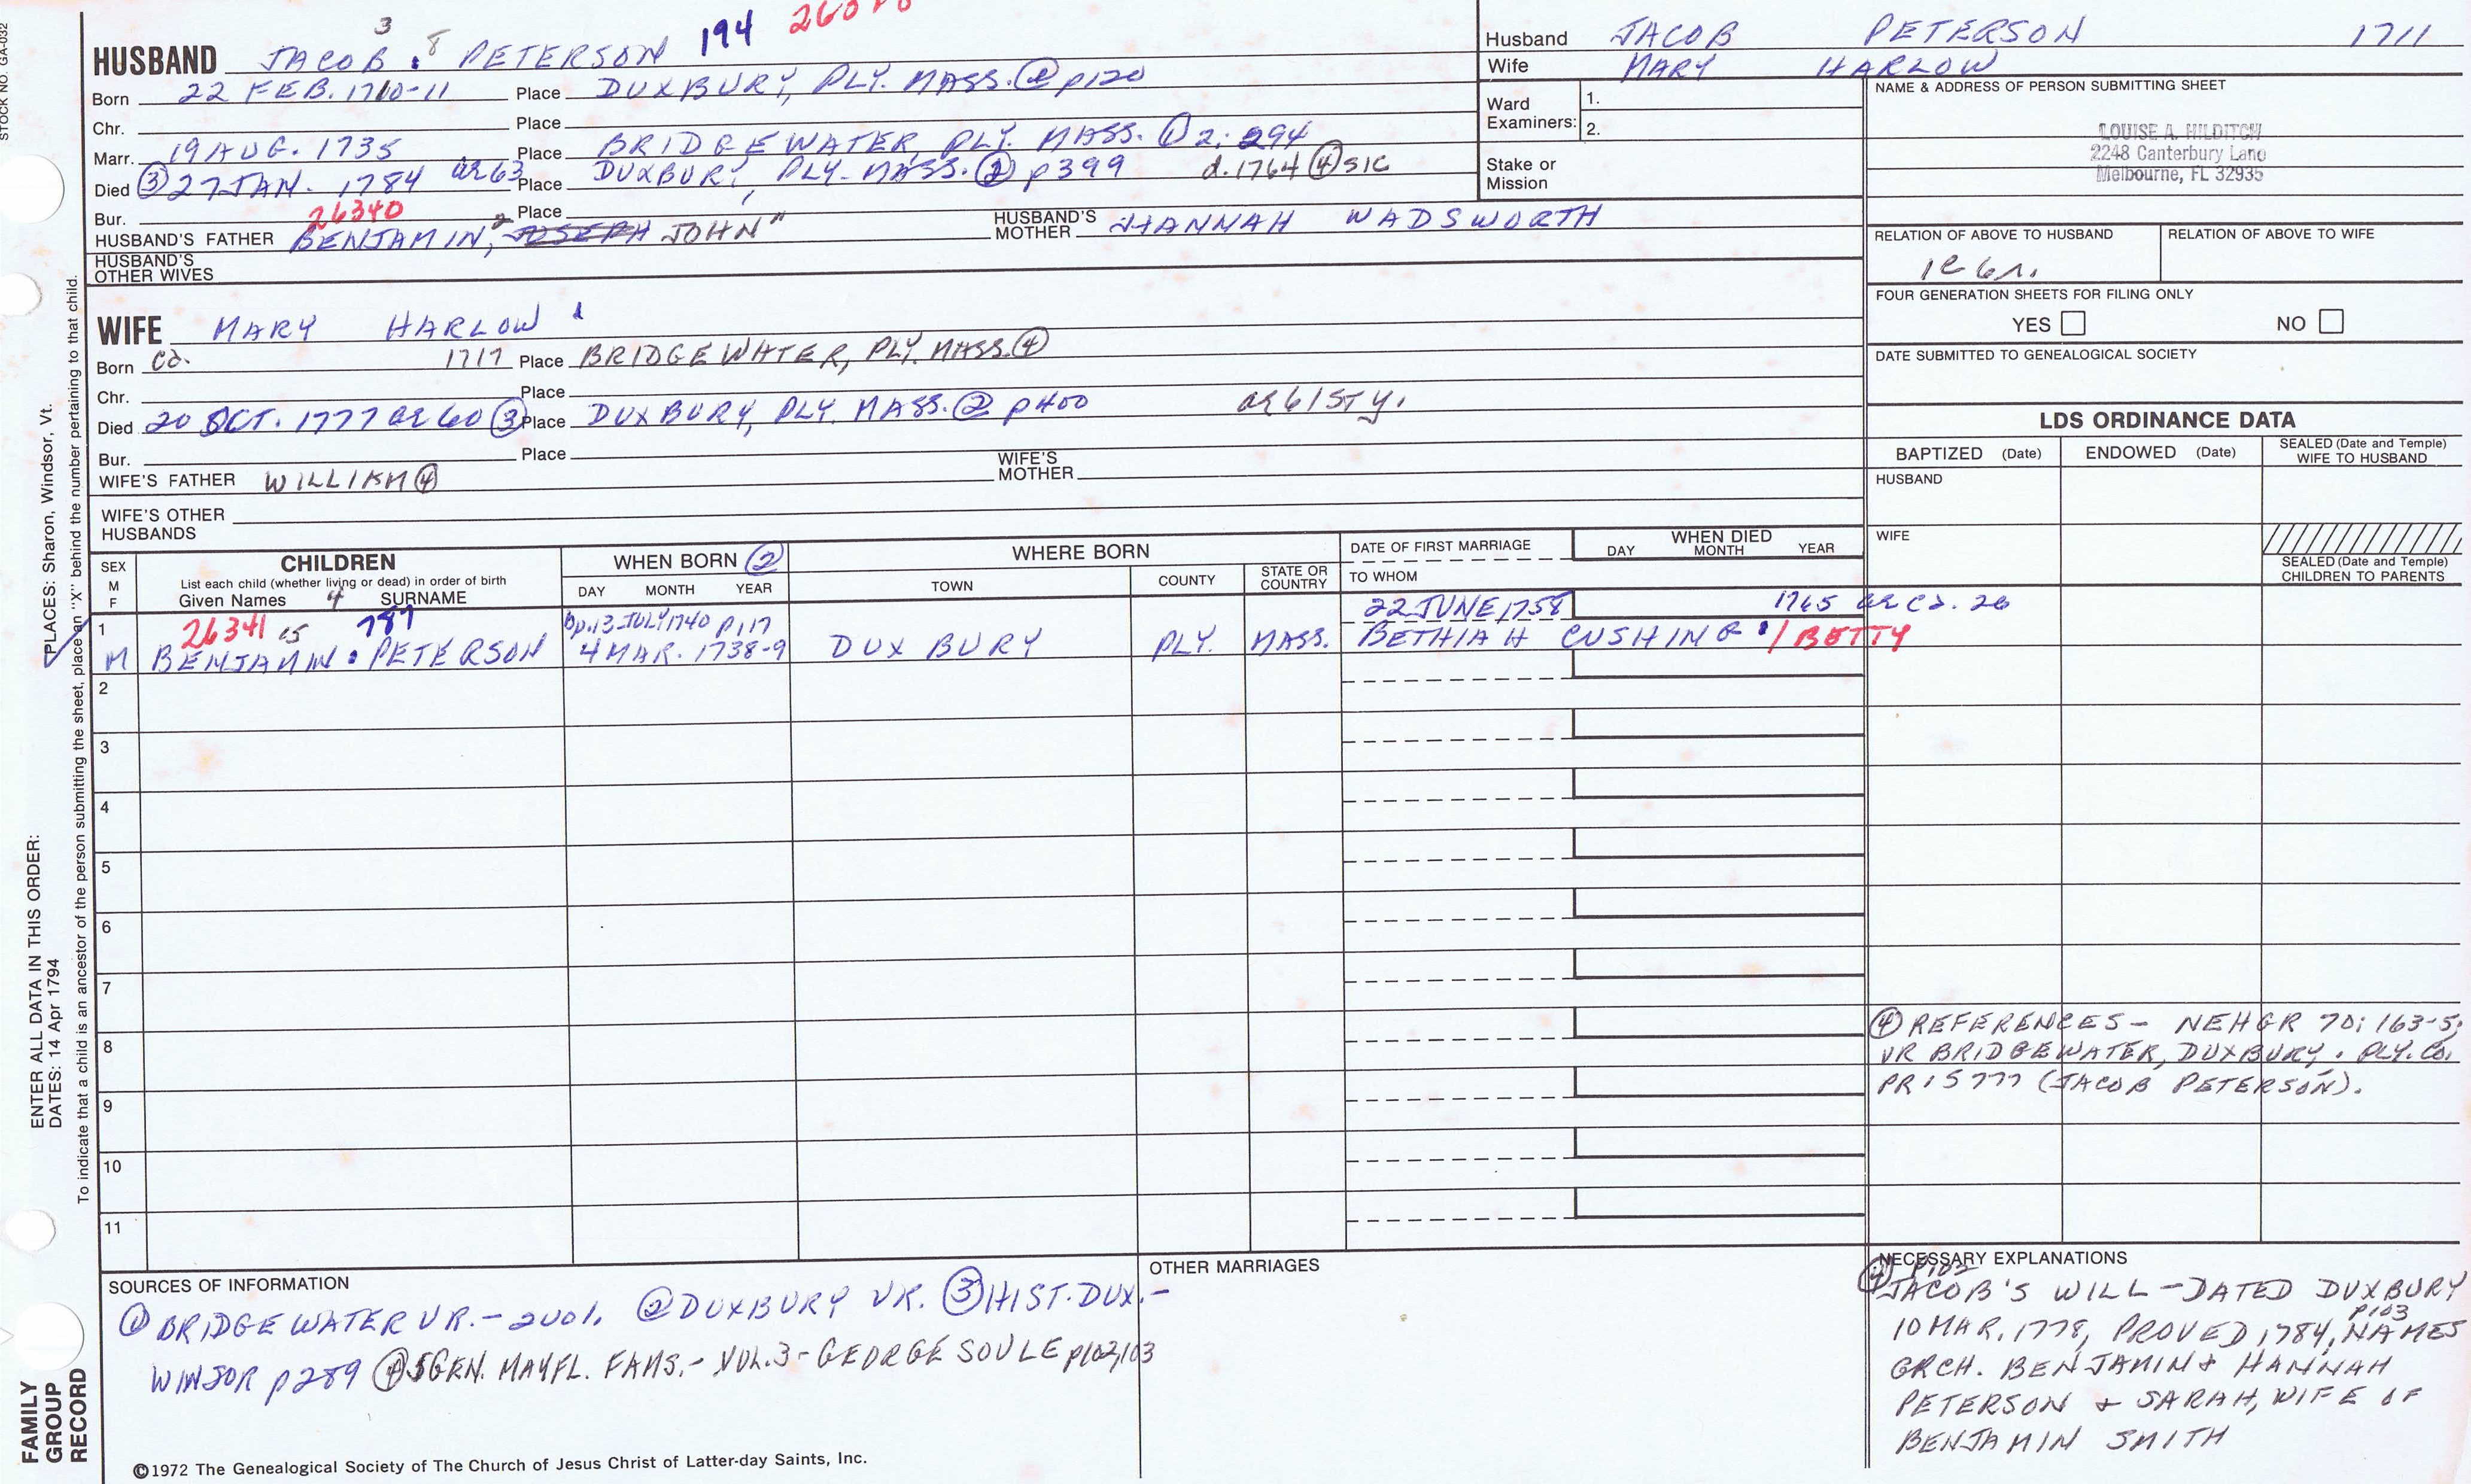 STOCK NO. GA-032
3 8 194
HUSBAND JACOB PETERSON
Born 22 FEB. 1710-11 Place DUXBURY, PLY. MASS. ② p120
Chr. Place
Marr. 19 AUG. 1735 Place BRIDGEWATER, PLY. MASS. ① 2: 294
Died ③ 27 JAN. 1784 ae 63 Place DUXBURY, PLY. MASS. ② p399 d. 1764 ④ SIC
Bur. Place
26340
HUSBAND'S FATHER BENJAMIN, 2 JOSEPH JOHN" HUSBAND'S MOTHER HANNAH WADSWORTH
HUSBAND'S OTHER WIVES
WIFE MARY HARLOW
Born ca. 1717 Place BRIDGEWATER, PLY. MASS. ④
Chr. Place
Died 20 OCT. 1777 ae 60 ③ Place DUXBURY, PLY. MASS. ② p400 ae 61st y.
Bur. Place
WIFE'S FATHER WILLIAM ④ WIFE'S MOTHER
WIFE'S OTHER HUSBANDS
Husband JACOB PETERSON 1711
Wife MARY HARLOW
Ward Examiners: 1.
2.
Stake or Mission
NAME & ADDRESS OF PERSON SUBMITTING SHEET
LOUISE A. HILDITCH
2248 Canterbury Lane
Melbourne, FL 32935
RELATION OF ABOVE TO HUSBAND RELATION OF ABOVE TO WIFE
FOUR GENERATION SHEETS FOR FILING ONLY
YES NO
DATE SUBMITTED TO GENEALOGICAL SOCIETY
LDS ORDINANCE DATA
BAPTIZED (Date) ENDOWED (Date) SEALED (Date and Temple) WIFE TO HUSBAND
HUSBAND
WIFE
SEALED (Date and Temple) CHILDREN TO PARENTS
SEX M F CHILDREN WHEN BORN ② WHERE BORN DATE OF FIRST MARRIAGE WHEN DIED
List each child (whether living or dead) in order of birth
Given Names 4 SURNAME DAY MONTH YEAR TOWN COUNTY STATE OR COUNTRY TO WHOM DAY MONTH YEAR
1 26341 787 bp. 13 JULY 1740 p117 22 JUNE, 1758 1765 ae ca. 26
M BENJAMIN PETERSON 4 MAR. 1738-9 DUXBURY PLY. MASS. BETHIAH CUSHING / BETTY
2
3
4
5
6
7
8
9
10
11
④ REFERENCES - NEHGR 70: 163-5;
VR BRIDGEWATER, DUXBURY. PLY. CO.
PR 15777 (JACOB PETERSON).
SOURCES OF INFORMATION
① BRIDGEWATER VR. - 2 vol. ② DUXBURY VR. ③ HIST. DUX. -
WINSOR p289 ④ 5 GEN. MAYFL. FAMS. - VOL. 3 - GEORGE SOULE p102,103
OTHER MARRIAGES
NECESSARY EXPLANATIONS
④ p102
JACOB'S WILL - DATED DUXBURY
10 MAR, 1778, PROVED 1784, p103 NAMES
GRCH. BENJAMIN & HANNAH
PETERSON & SARAH, WIFE OF
BENJAMIN SMITH
©1972 The Genealogical Society of The Church of Jesus Christ of Latter-day Saints, Inc.
FAMILY GROUP RECORD
ENTER ALL DATA IN THIS ORDER:
DATES: 14 Apr 1794
PLACES: Sharon, Windsor, Vt.
To indicate that a child is an ancestor of the person submitting the sheet, place an "X" behind the number pertaining to that child.